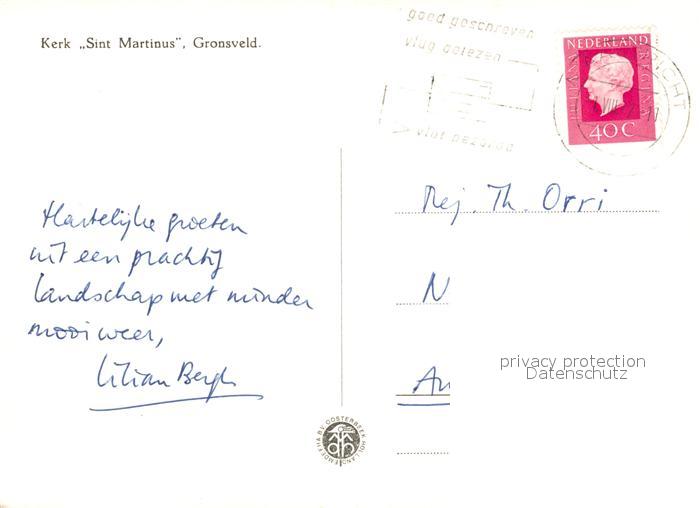 Kerk „Sint Martinus”, Gronsveld.
goed geschreven
vlug gelezen
vlot bezorgd
NEDERLAND
JULIANA REGINA
40 C
Hartelijke groeten
uit een prachtig
landschap met minder
mooi weer,
Lilian Bergh
Mej. Th. Orri
N
An
privacy protection
Datenschutz
OOSTERBEEK HOLLAND